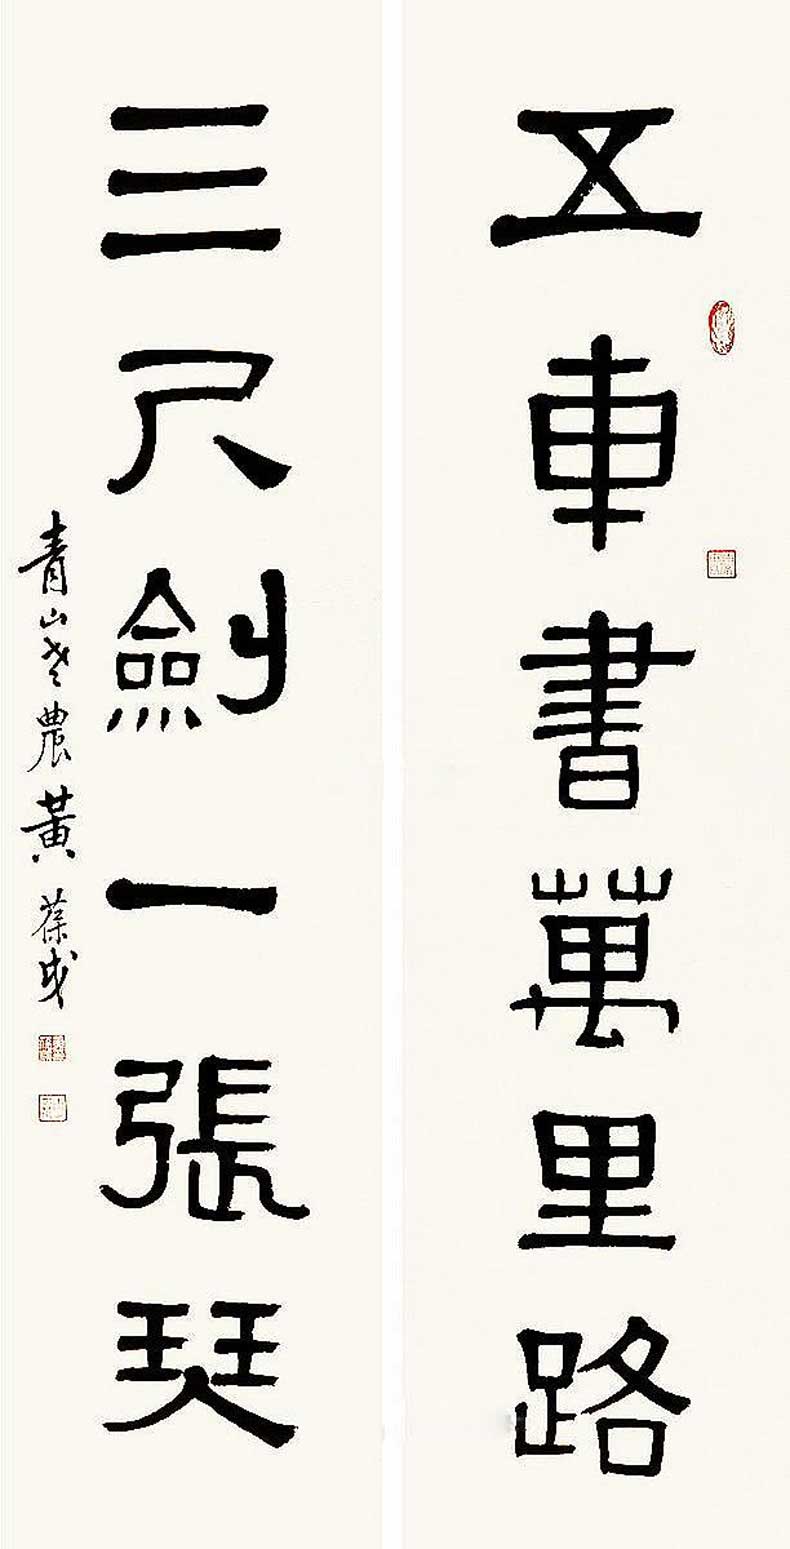 五車書萬里路
三尺劍一張琹
青山老農黃葆戉